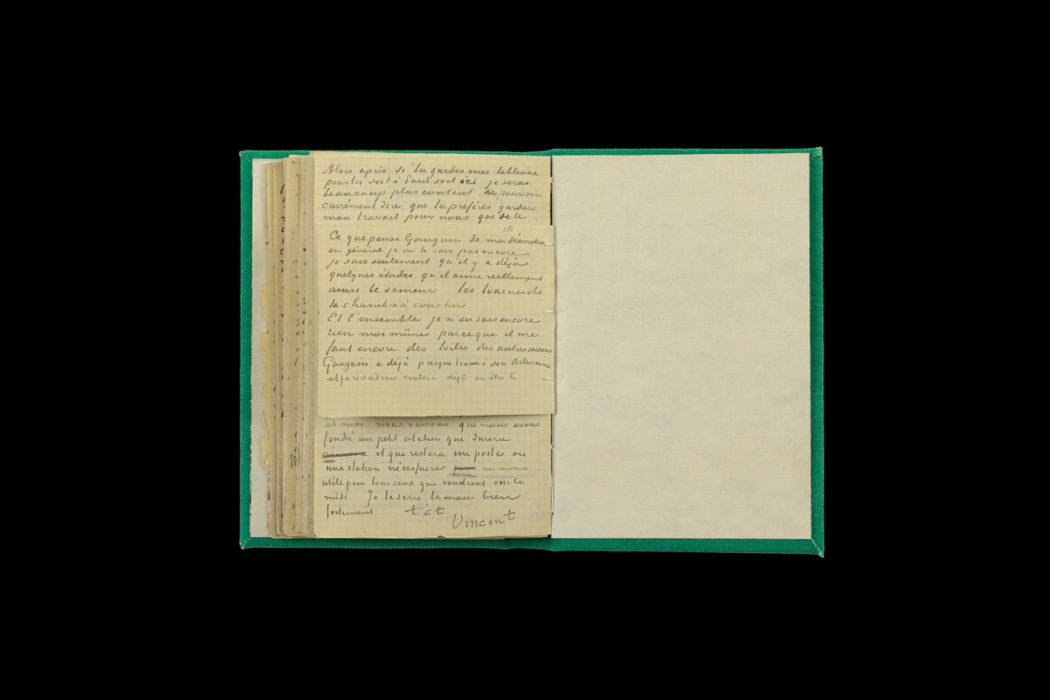 Alors après si tu gardes mes tableaux
pour toi soit à Paris soit ici je serai
beaucoup plus content de pouvoir
carrément dire que tu préfères garder
mon travail pour nous que de le
Ce que pense Gauguin de ma décoration
en général je ne le sais pas encore
je sais seulement qu'il y a déjà
quelques études qu'il aime réellement
ainsi le semeur les tournesols
la chambre à coucher
Et l'ensemble je n'en sais encore
rien moi même parce que il me
faut encore des toiles des autres saisons
Gauguin a déjà presque trouvé son Arlésienne
et je voudrais déjà en être là
et moi nous verrons que nous avons
fondé un petit atelier qui durera
et que restera un poste ou
une station nécessaire au moins
utile pour tous ceux que voudront voir le
midi Je te serre la main bien
fortement t. à t.
Vincent